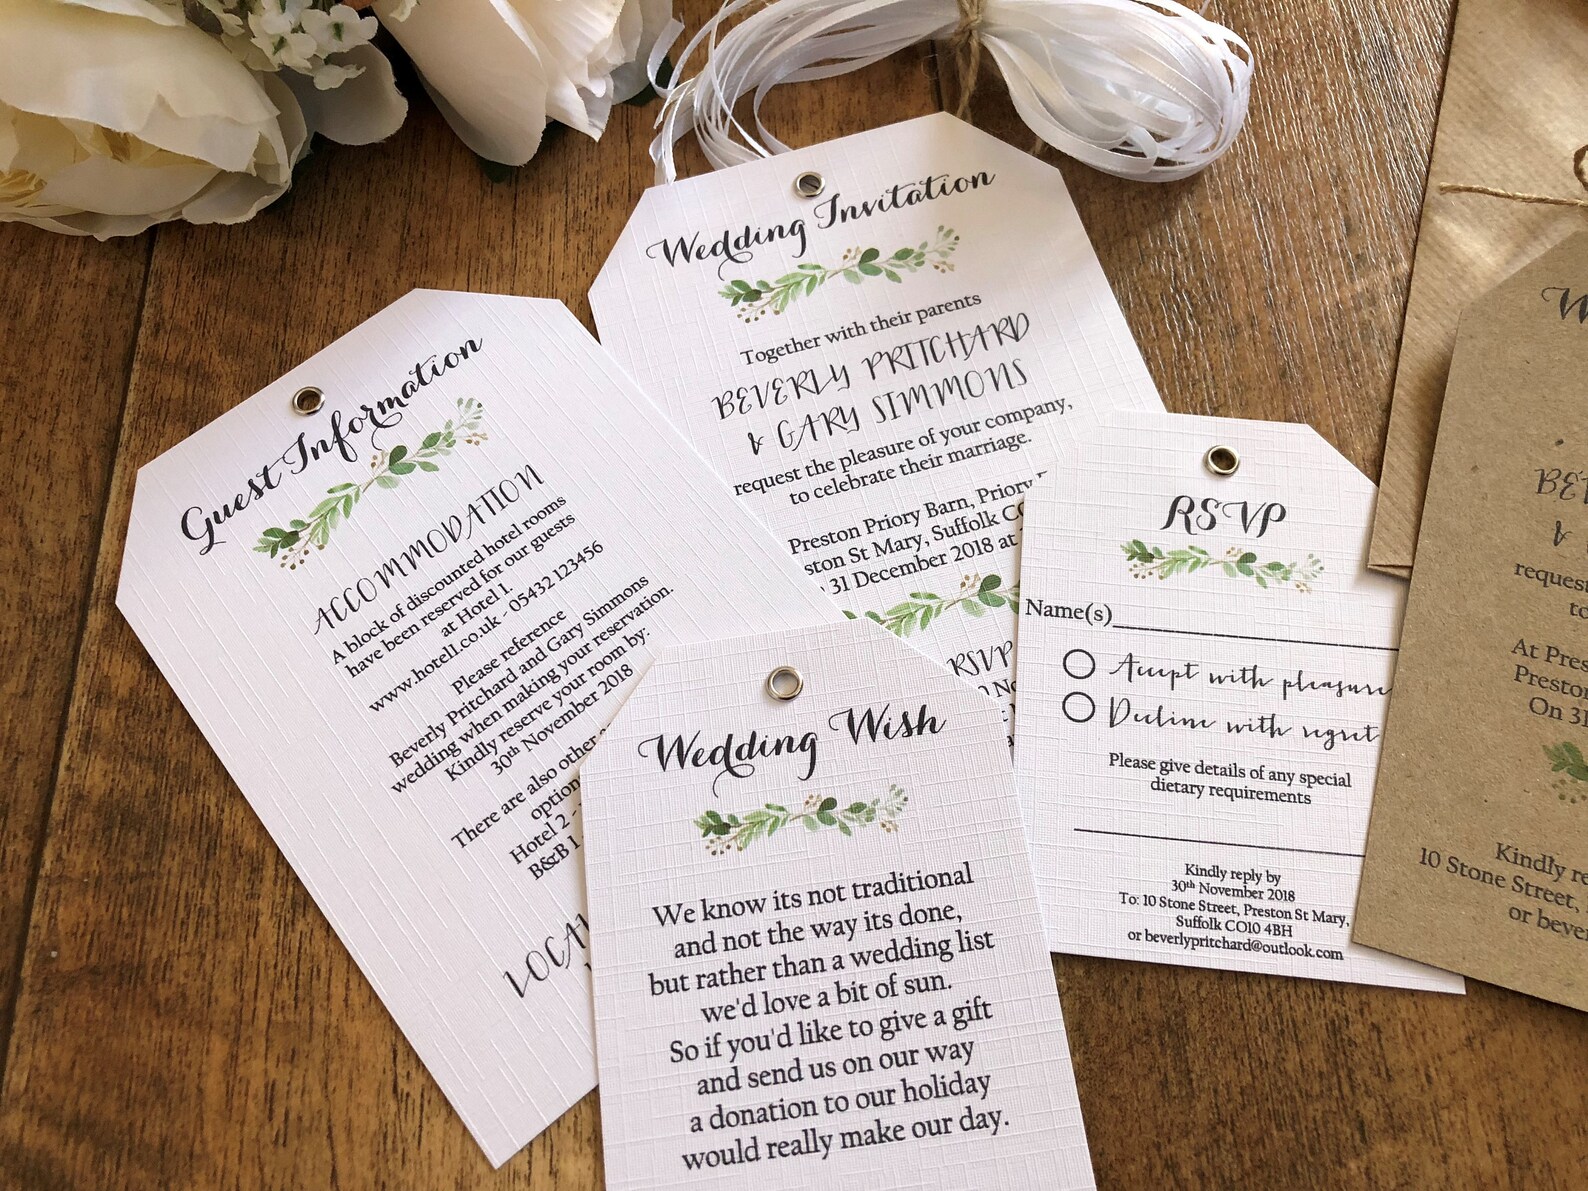 Wedding Invitation
Together with their parents
BEVERLY PRITCHARD
& GARY SIMMONS
request the pleasure of your company,
to celebrate their marriage.
Preston Priory Barn, Priory
ston St Mary, Suffolk CO
31 December 2018 at
RSVP
Guest Information
ACCOMMODATION
A block of discounted hotel rooms
have been reserved for our guests
at Hotel 1.
www.hotel1.co.uk - 05432 123456
Please reference
Beverly Pritchard and Gary Simmons
wedding when making your reservation.
Kindly reserve your room by:
30th November 2018
There are also other
option
Hotel 2 -
B&B 1
LOCA
Wedding Wish
We know its not traditional
and not the way its done,
but rather than a wedding list
we'd love a bit of sun.
So if you'd like to give a gift
and send us on our way
a donation to our holiday
would really make our day.
RSVP
Name(s)
Accept with pleasure
Decline with regret
Please give details of any special
dietary requirements
Kindly reply by
30th November 2018
To: 10 Stone Street, Preston St Mary,
Suffolk CO10 4BH
or beverlypritchard@outlook.com
W
BE
&
request
to
At Pres
Preston
On 31
Kindly re
10 Stone Street,
or bever